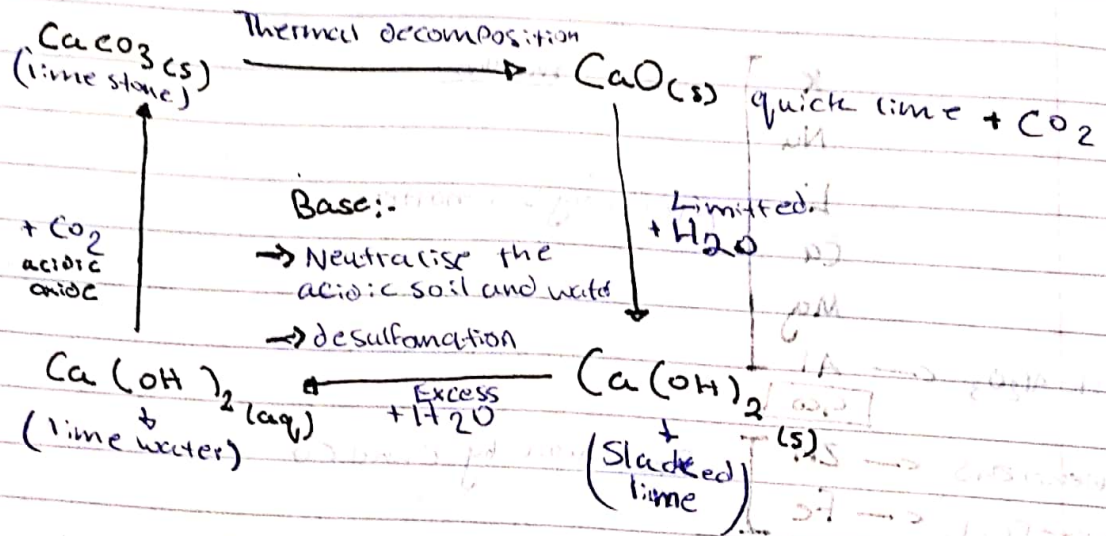 Thermal decomposition
CaCO3(s)
(lime stone)
CaO(s) quick lime + CO2
+ CO2
acidic
oxide
Base:-
→ Neutralise the
acidic soil and water
→ desulfanation
Limitted
+ H2O
Ca(OH)2(aq)
(lime water)
Excess
+H2O
Ca(OH)2
(s)
(Slacked
lime)